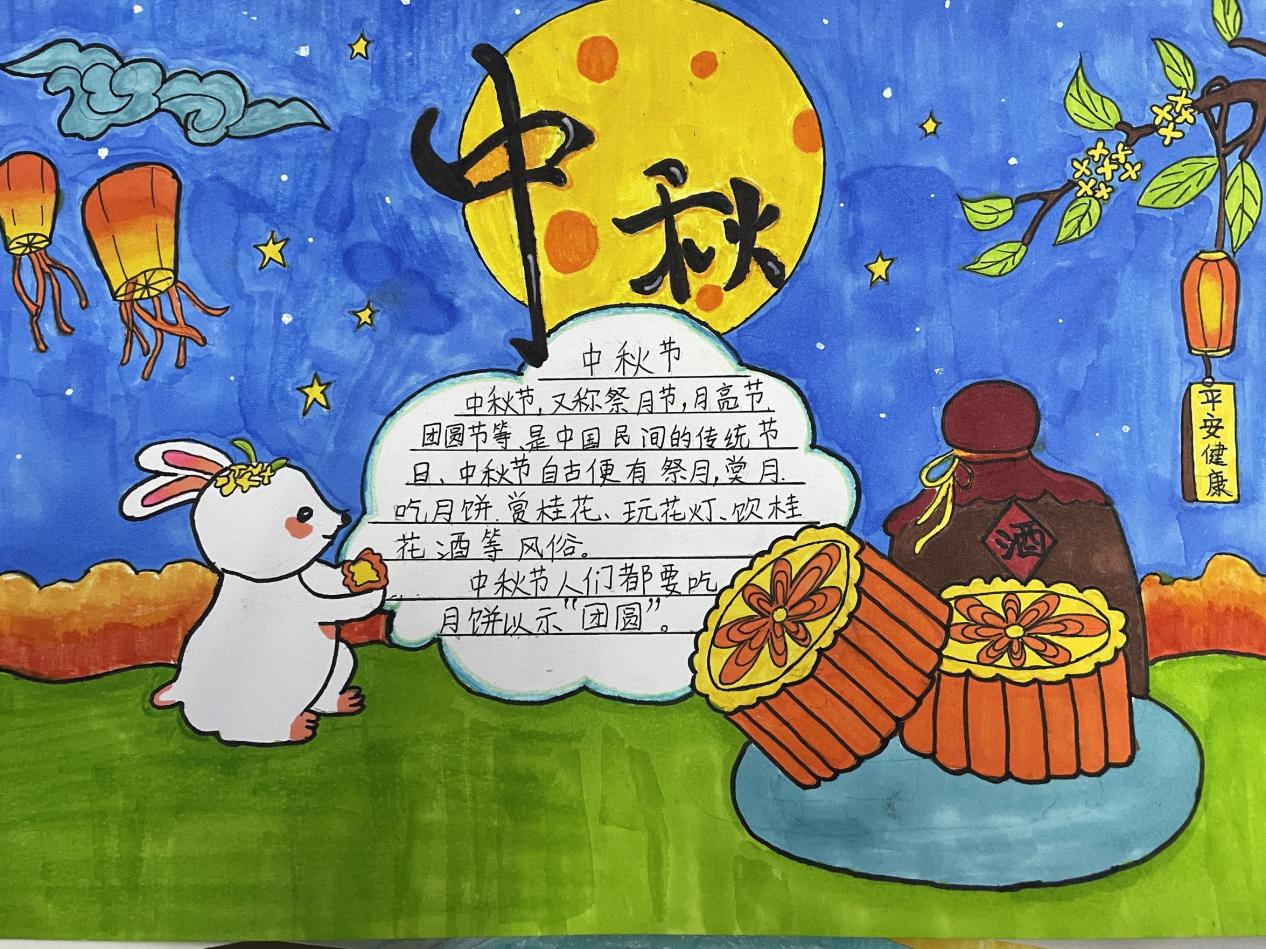 中秋
中秋节
中秋节,又称祭月节,月亮节,
团圆节等,是中国民间的传统节
日、中秋节自古便有祭月,赏月.
吃月饼.赏桂花、玩花灯、饮桂
花酒等风俗。
中秋节人们都要吃
月饼以示“团圆”。
酒
平安健康